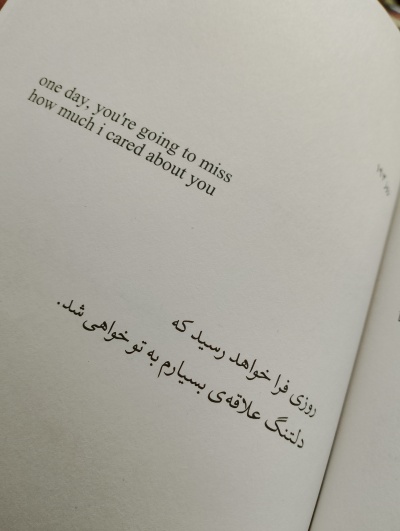 one day, you're going to miss
how much i cared about you
روزی فرا خواهد رسید که
دلتنگ علاقه‌ی بسیارم به تو خواهی شد.